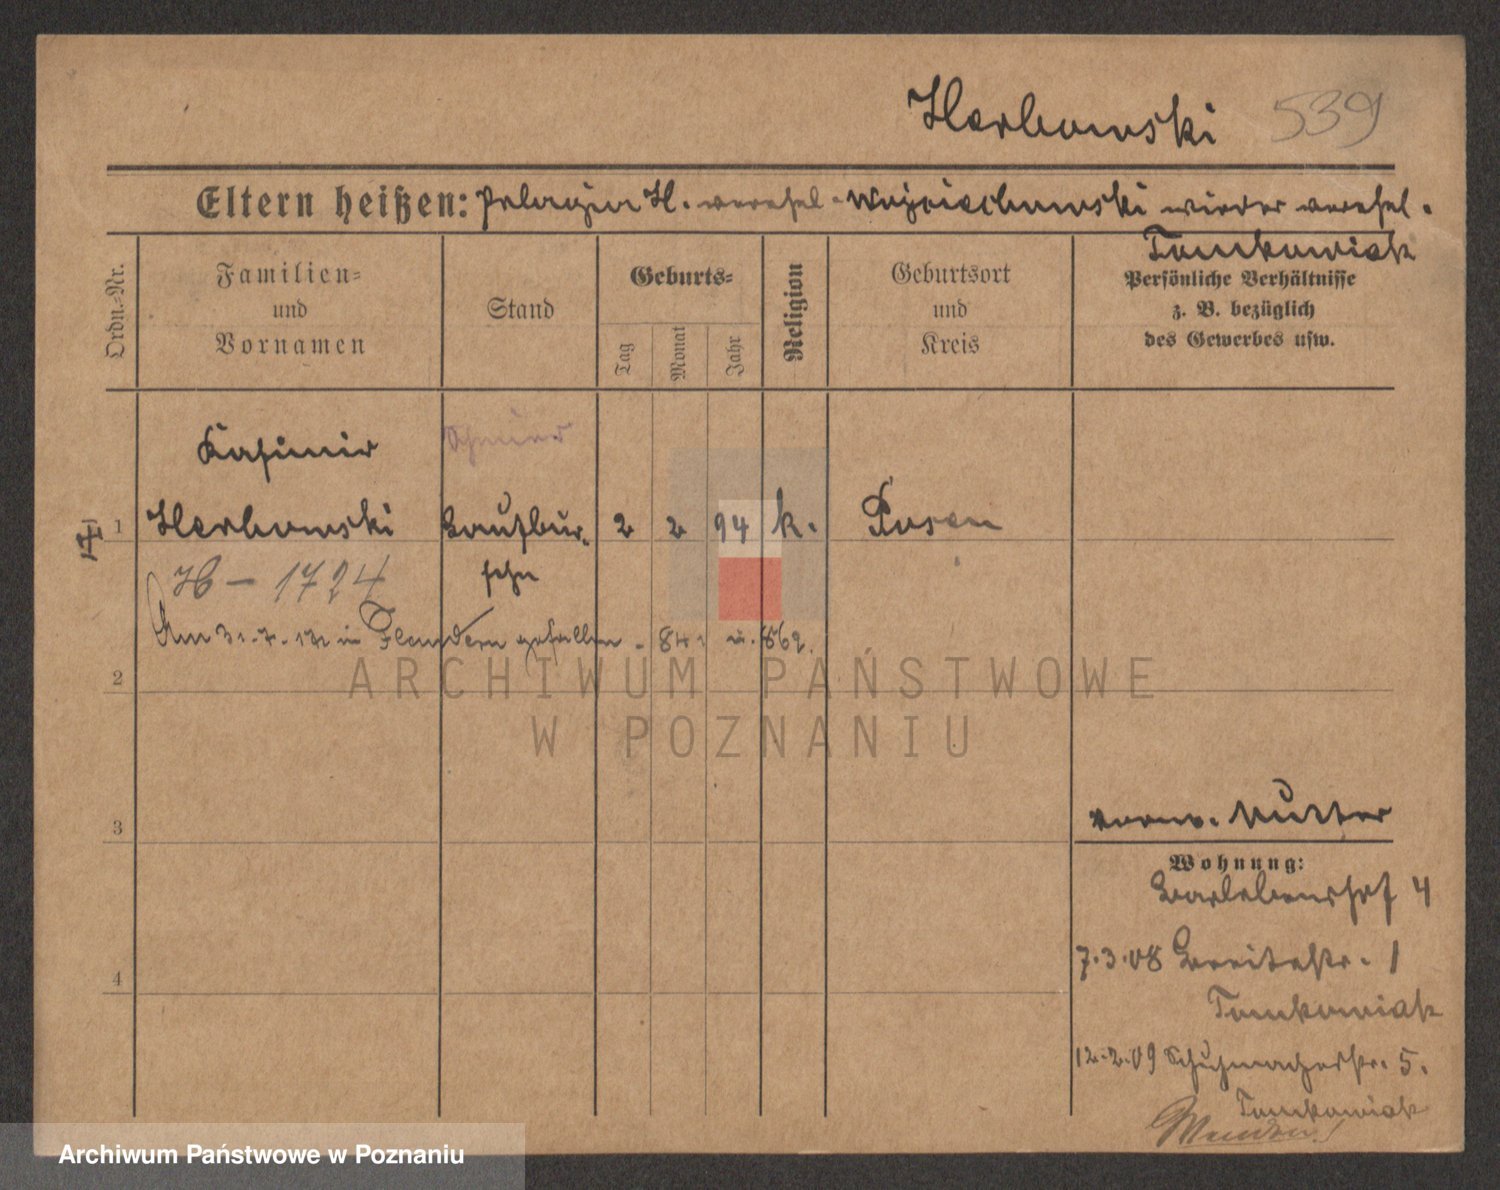 Herbowski 539
Eltern heißen: Pelagia H. verehel. Wojciechowski wieder verehel.
Tomkowiak
Ordn.=Nr.
Familien=
und
Vornamen
Stand
Geburts=
Tag
Monat
Jahr
Religion
Geburtsort
und
Kreis
Persönliche Verhältnisse
z. B. bezüglich
des Gewerbes usw.
Kasimir
1 Herbowski Laufbur-
sche
2 2 94 k. Posen
H - 1724
Am 31.7.17 in Flandern gefallen - 841 u. 862.
2
ARCHIWUM PAŃSTWOWE
W POZNANIU
3
verw. Mutter
Wohnung:
4
7.3.08 Breitestr. 1
Tomkowiak
12.2.09 Schuhmacherstr. 5.
Tomkowiak
Archiwum Państwowe w Poznaniu